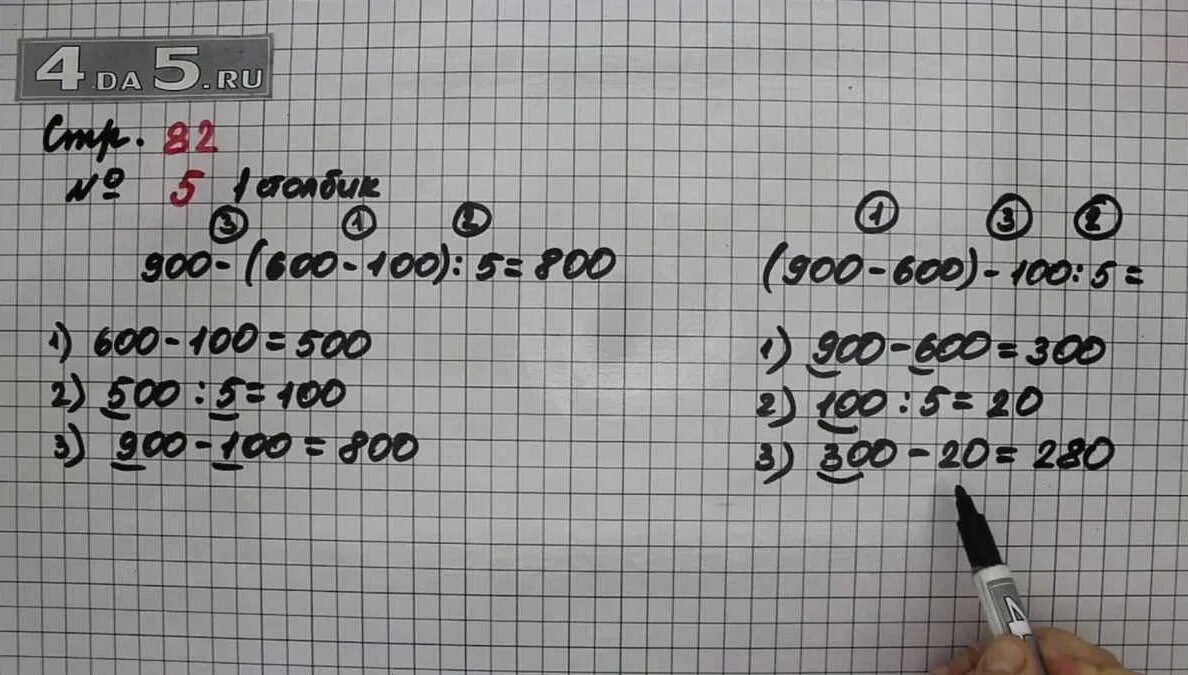 4DA5.RU
Стр. 82
№ 5 1 столбик
3 1 2
900-(600-100):5=800
1) 600-100=500
2) 500:5=100
3) 900-100=800
1 3 2
(900-600)-100:5=
1) 900-600=300
2) 100:5=20
3) 300-20=280
4